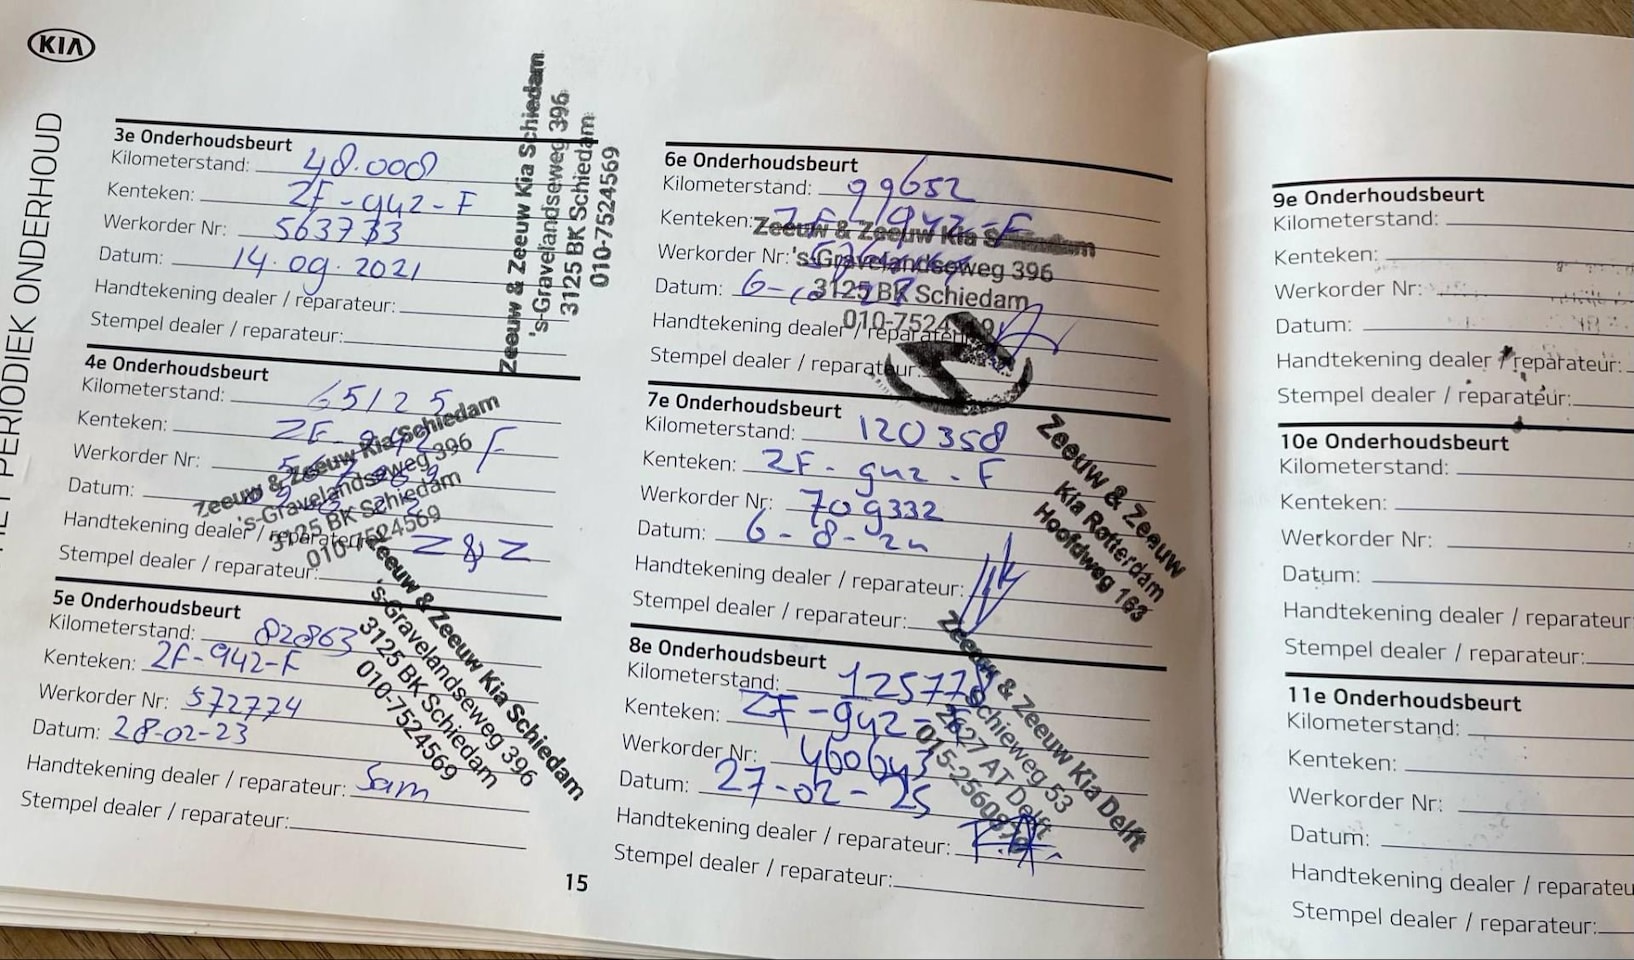 KIA
PERIODIEK ONDERHOUD
3e Onderhoudsbeurt
Kilometerstand: 48.000
Kenteken: ZF-942-F
Werkorder Nr: 563733
Datum: 14.09.2021
Handtekening dealer / reparateur:
Stempel dealer / reparateur:
Zeeuw & Zeeuw Kia Schiedam
's-Gravelandseweg 396
3125 BK Schiedam
010-7524569
4e Onderhoudsbeurt
Kilometerstand: 65125
Kenteken: ZF-942-F
Werkorder Nr:
Datum:
Handtekening dealer / reparateur: Z&Z
Stempel dealer / reparateur:
Zeeuw & Zeeuw Kia Schiedam
's-Gravelandseweg 396
3125 BK Schiedam
010-7524569
5e Onderhoudsbeurt
Kilometerstand: 82863
Kenteken: ZF-942-F
Werkorder Nr: 572774
Datum: 28-02-23
Handtekening dealer / reparateur: Sam
Stempel dealer / reparateur:
Zeeuw & Zeeuw Kia Schiedam
's-Gravelandseweg 396
3125 BK Schiedam
010-7524569
15
6e Onderhoudsbeurt
Kilometerstand: 99652
Kenteken: ZF-942-F
Werkorder Nr:
Datum:
Handtekening dealer / reparateur:
Stempel dealer / reparateur:
Zeeuw & Zeeuw Kia Schiedam
's-Gravelandseweg 396
3125 BK Schiedam
7e Onderhoudsbeurt
Kilometerstand: 120358
Kenteken: ZF-942-F
Werkorder Nr: 709332
Datum: 6-8-24
Handtekening dealer / reparateur:
Stempel dealer / reparateur:
Zeeuw & Zeeuw
Kia Rotterdam
Hoofdweg 163
8e Onderhoudsbeurt
Kilometerstand: 125778
Kenteken: ZF-942-F
Werkorder Nr: 460643
Datum: 27-02-25
Handtekening dealer / reparateur:
Stempel dealer / reparateur:
Zeeuw & Zeeuw Kia Delft
Schieweg 53
2627 AT Delft
9e Onderhoudsbeurt
Kilometerstand:
Kenteken:
Werkorder Nr:
Datum:
Handtekening dealer / reparateur:
Stempel dealer / reparateur:
10e Onderhoudsbeurt
Kilometerstand:
Kenteken:
Werkorder Nr:
Datum:
Handtekening dealer / reparateur
Stempel dealer / reparateur:
11e Onderhoudsbeurt
Kilometerstand:
Kenteken:
Werkorder Nr:
Datum:
Handtekening dealer / reparateu
Stempel dealer / reparateur: